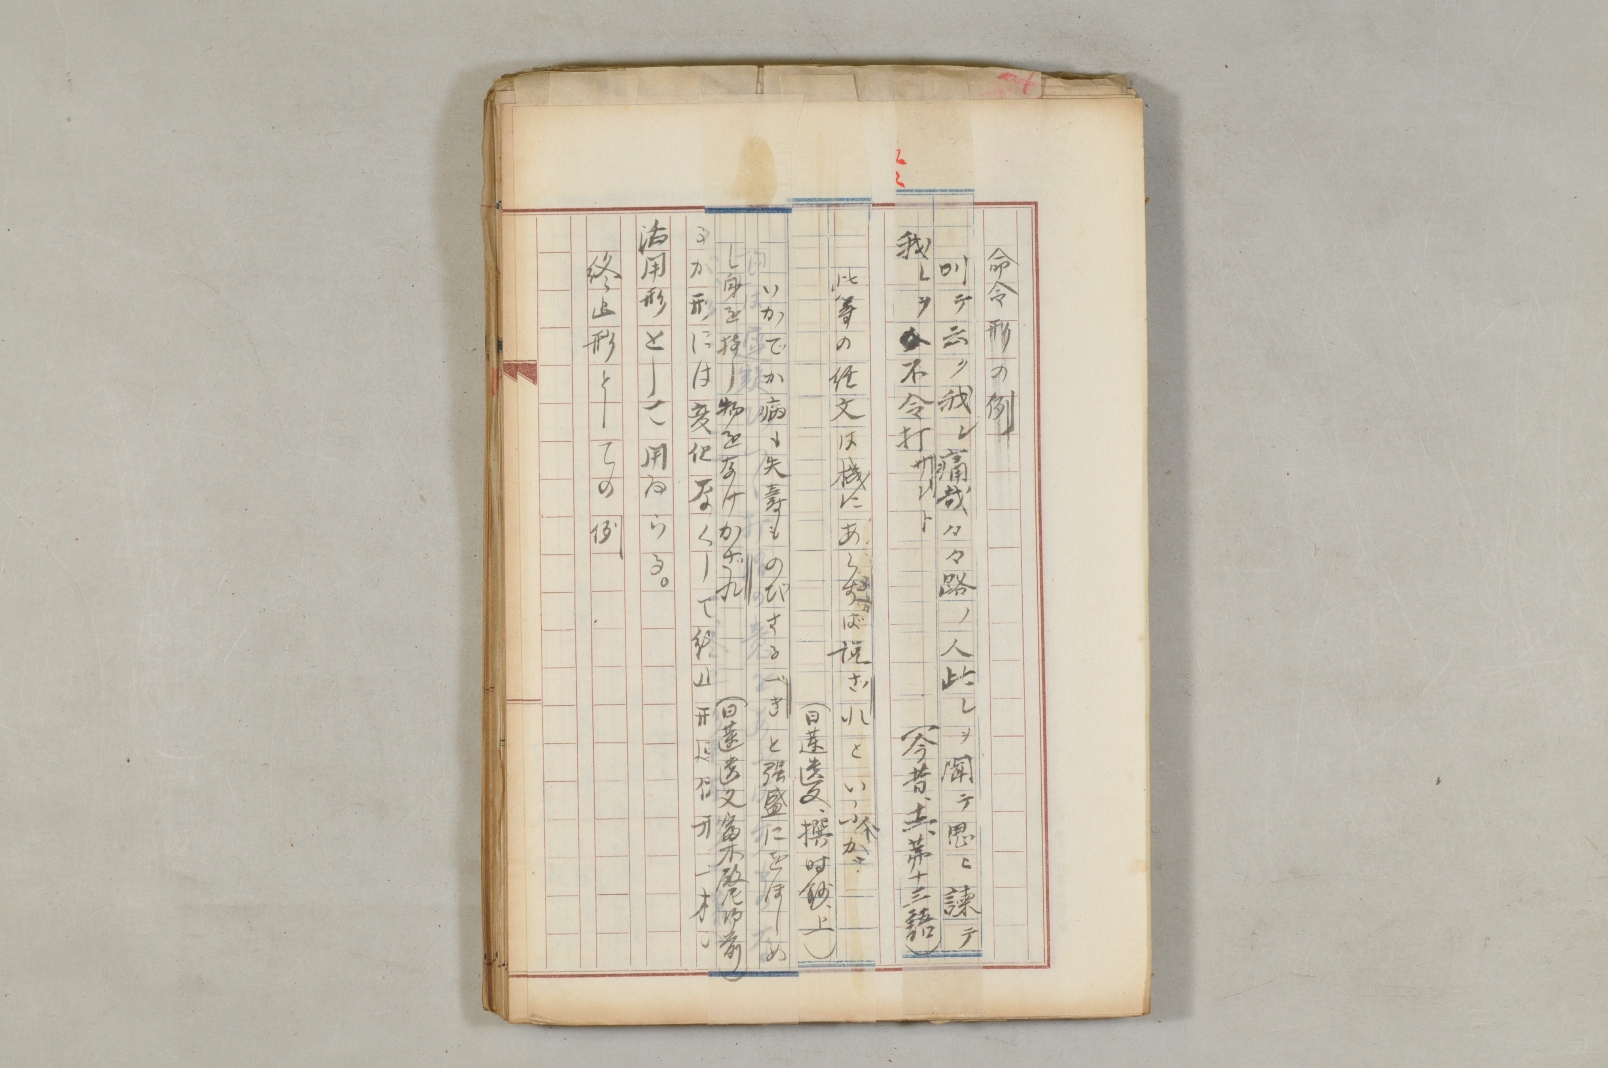 命令形の例
叫テ云ク我レ痛哉々々路ノ人此レヲ聞テ思ヒ諌テ
我レヲ不令打サレト
(今昔、十三、第十三語)
此等の経文は機にあらずば説されといふか
(日蓮遺文、撰時鈔、上)
いかでか病も失寿ものびざるべきと強盛にをぼしめ
し身を持し物をなげかざれ
(日蓮遺文富木殿尼御前)
るか形には変化なくして終止形
活用形として用ゐらる。
終止形としての例